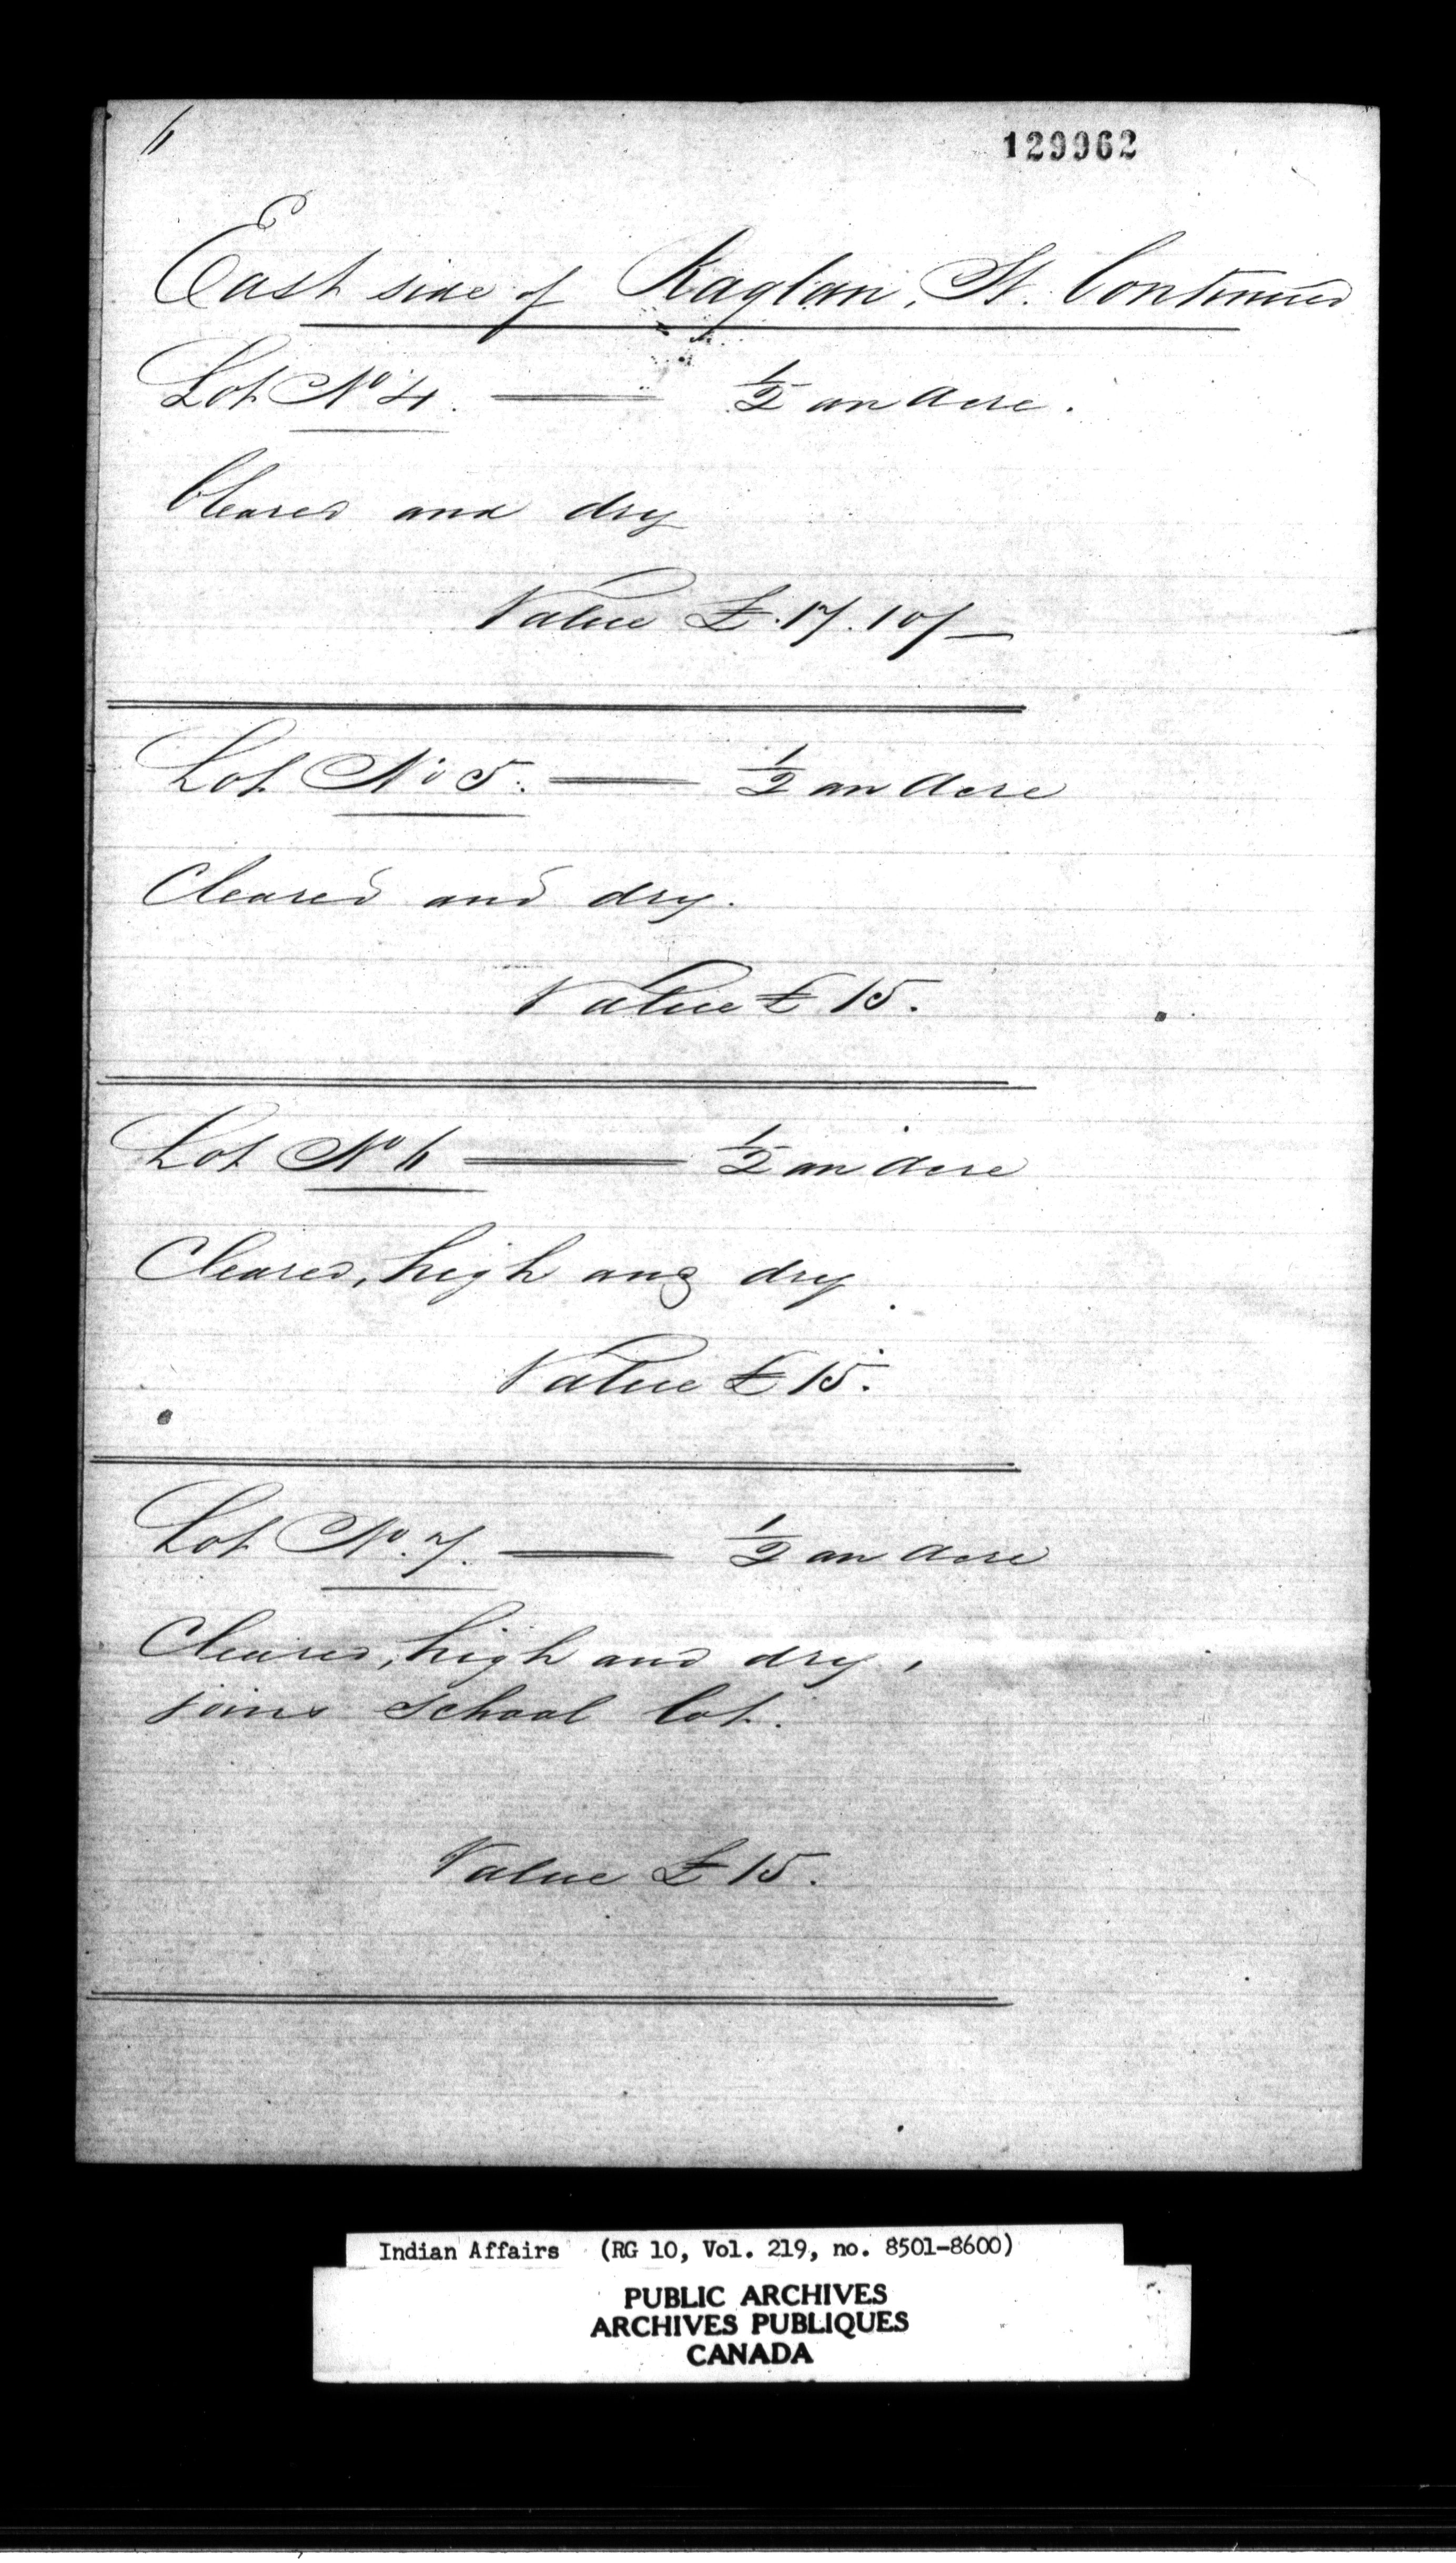 6
129962
East side of Raglan, St. Continued
Lot No 4. ½ an Acre.
Cleared and dry
Value £.17.10/—
Lot No 5. ½ an Acre
Cleared and dry.
Value £15.
Lot No 6 ½ an Acre
Cleared, high and dry
Value £15.
Lot No. 7. ½ an Acre
Cleared, high and dry,
joins School lot.
Value £15.
Indian Affairs (RG 10, Vol. 219, no. 8501-8600)
PUBLIC ARCHIVES
ARCHIVES PUBLIQUES
CANADA